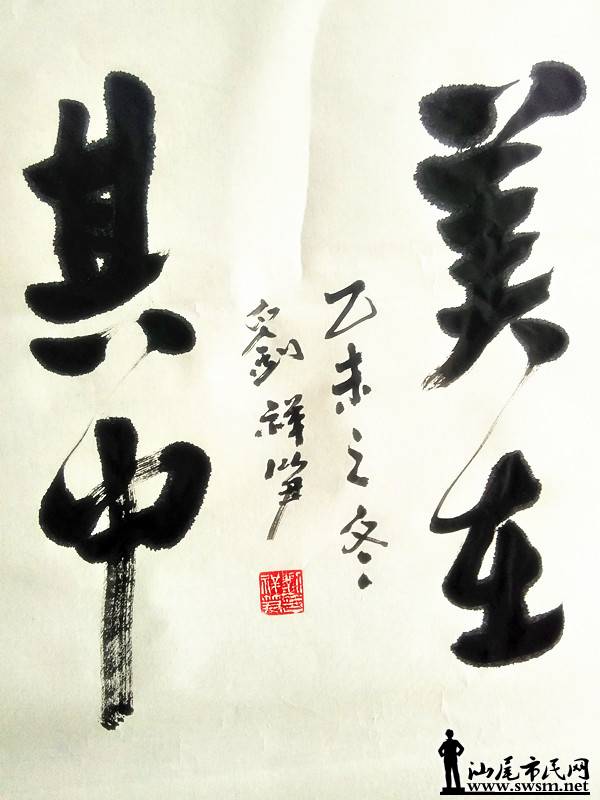 美在
其中
乙未之冬
劉祥笋
汕尾市民网
www.swsm.net